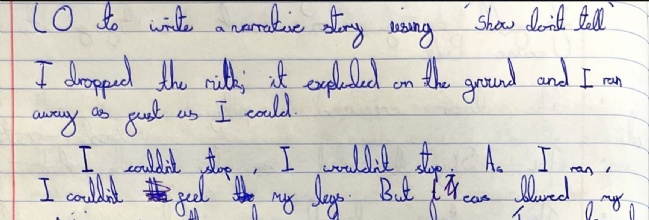 LO to write a narrative story using 'show don't tell'
I dropped the milk; it exploded on the ground and I ran
away as fast as I could.
I couldn't stop, I wouldn't stop. As I ran,
I couldn't feel my legs. But tears blured my